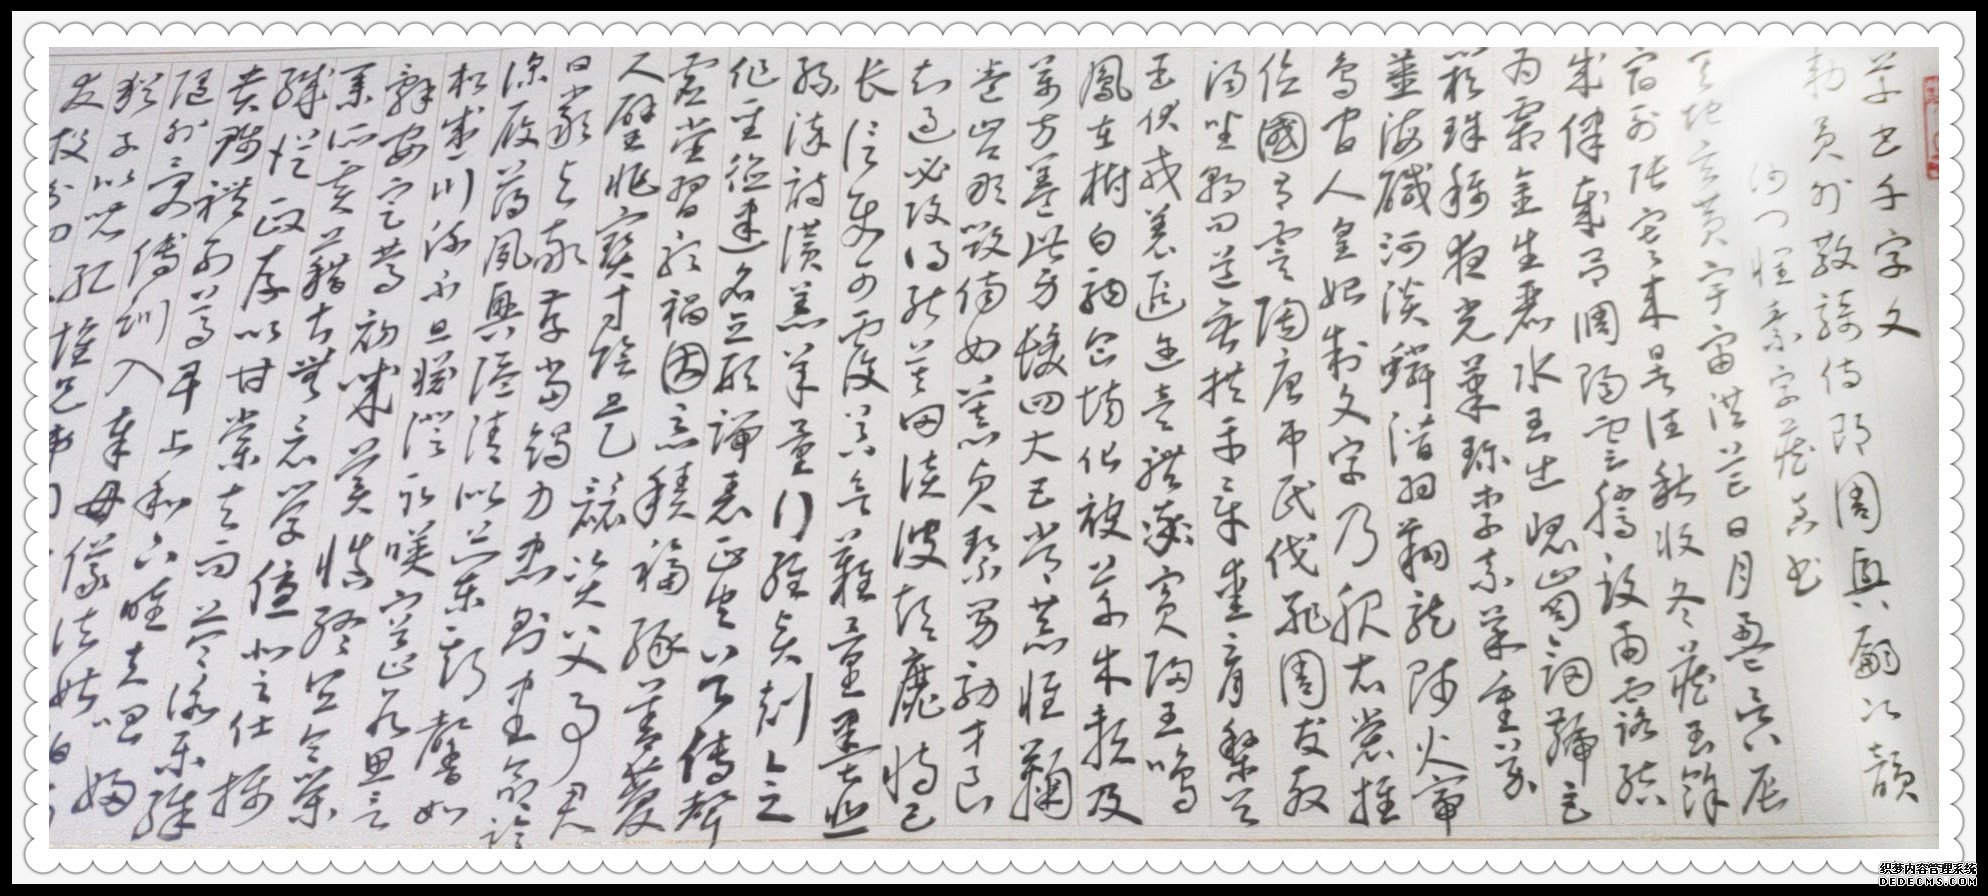 草书千字文
敕员外散骑侍郎周興嗣次韻
沙门怀素字藏真书
天地玄黄宇宙洪荒日月盈昃辰
宿列张寒来暑往秋收冬藏闰餘
成律岁吕调阳云腾致雨露结
为霜金生丽水玉出崑岗剑號巨
阙珠称夜光菓珍李柰菜重芥
薑海醎河淡鳞潛羽翔龙师火帝
鸟官人皇始制文字乃服衣裳推
位國有虞陶唐弔民伐罪周发殷
汤坐朝问道垂拱平章爱育黎首
臣伏戎羌遐迩壹體率宾归王鸣
鳳在树白驹食场化被草木赖及
萬方盖此身髮四大五常恭惟鞠
养岂敢毁伤女慕贞絜男効才良
知过必改得能莫罔谈彼短靡恃己
长信使可覆器欲難量墨悲
絲染诗讚羔羊景行维贤剋念
作聖德建名立形端表正空谷傳聲
虚堂習听禍因恶積福缘善慶
尺璧非寶寸陰是競资父事君
曰嚴与敬孝当竭力忠则尽命临
深履薄夙興温清似兰斯馨如
松盛川流不息渊澄取暎容止若思言
辞安定笃初诚美慎终宜令荣
業所基籍甚無竟学优登仕摄
職從政存以甘棠去而益詠樂殊
贵贱礼别尊卑上和下睦夫唱婦
随外受傅訓入奉母儀诸姑伯
犹子比儿孔懷兄弟
交投分切
织梦内容管理系统
DEDECMS.COM